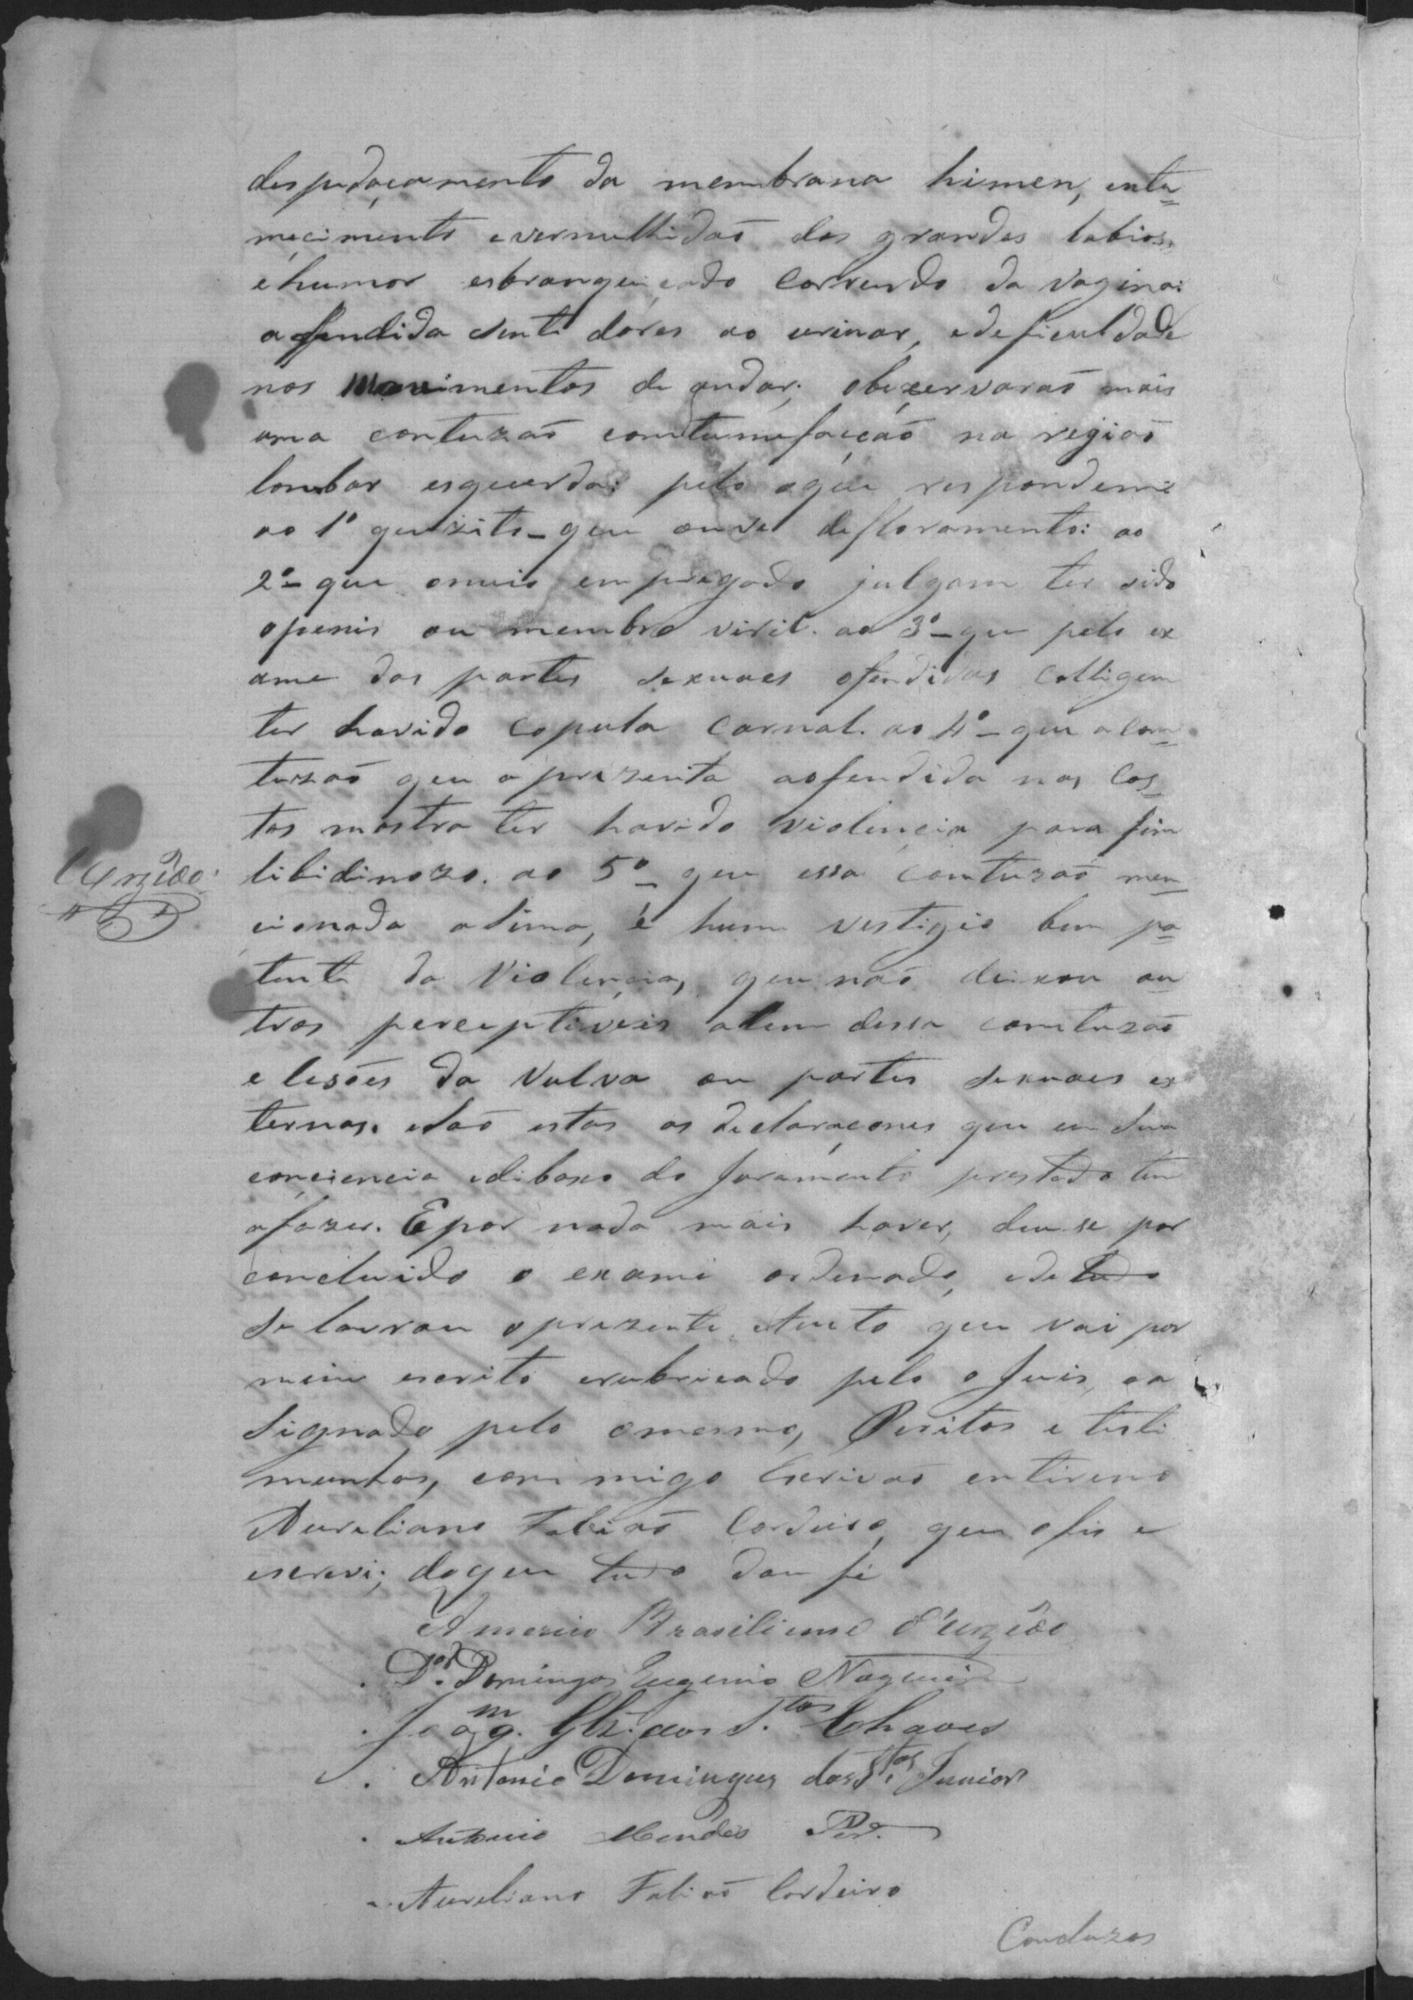 despedaçamento da membrana himen, entu-
mecimento e vermelhidaõ dos grandes labios,
e humor esbranqueiçado correndo da vagina:
a ofendida sente dores ao urinar, e deficuldade
nos movimentos de andar; obcervaraõ mais
uma contuzaõ com tumefacçaõ na regiaõ
lombar esquerda: pelo o que respondem:
ao 1º quizito - que ouve defloramento: ao
2º - que o meio empregado julgam ter sido
o penis ou membro viril. ao 3º - que pelo ex
ame das partes sexuaes ofendidas colligem
ter havido copula carnal. ao 4º - que a con-
tuzaõ que aprezenta a ofendida nas Cos-
tas mostra ter havido violencia para fim
libidinozo. ao 5º - que essa contuzaõ men-
cionada asima, é hum vestigio bem pa-
tente da Violencia, que naõ deixou ou-
tros perceptiveis alem dessa contuzaõ
e lesões da Vulva ou partes sexuaes ex
ternas. e saõ estas as declaraçones que em sua
conciencia e debaxo do Juramento prestado tem
a fazer. E por nada mais haver, deu-se por
concluido o exame ordenado, e de tudo
se lavrou o prezente Auto que vai por
mim escrito e rubricado pelo o Juis, e a
signado pelo o mesmo, Peritos e teste
munhas, com migo Escrivaõ entireno
Aureliano Fabiaõ Cordeiro, que o fis e
escrevi; do que tudo dou fé
Americo Brasiliense d'Urzêdo
Dor. Domingos Eugenio Nogueira
Joaqm. Glz. dos Stos Chaves
Antonio Domingues dos Stos Junior
Antonio Mendes
Aureliano Fabiaõ Cordeiro
Concluzos
Urzêdo